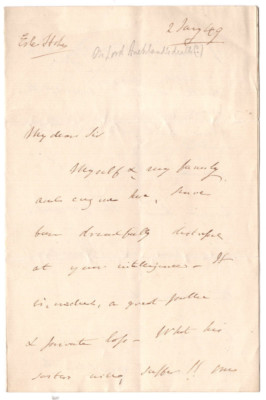 2 Jany 49
On Lord Auckland's death (?)
My dear Sir
Myself & my family
and any one here, have
been dreadfully distressed
at your intelligence - It
is, indeed, a great public
& private loss - What his
sisters must suffer !!